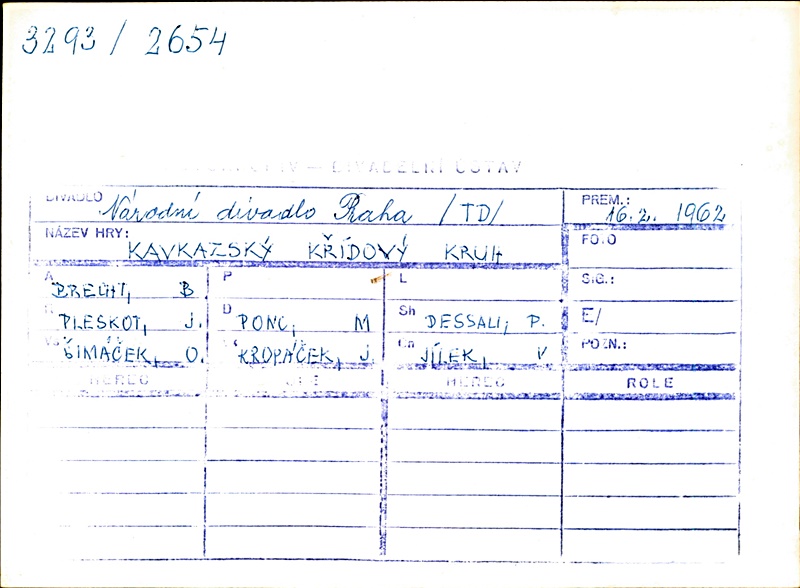 3293 / 2654
DIVADELNÍ ÚSTAV
DIVADLO Národní divadlo Praha /TD/ PREM.: 16.2. 1962
NÁZEV HRY: KAVKAZSKÝ KŘÍDOVÝ KRUH FOTO
A BRECHT, B. P L SIG.:
PLESKOT, J. D PONC, M Sh DESSALI, P. E/
ŠIMÁČEK, O. KROPÁČEK, J. JÍLEK, V POZN.:
HEREC HEREC ROLE